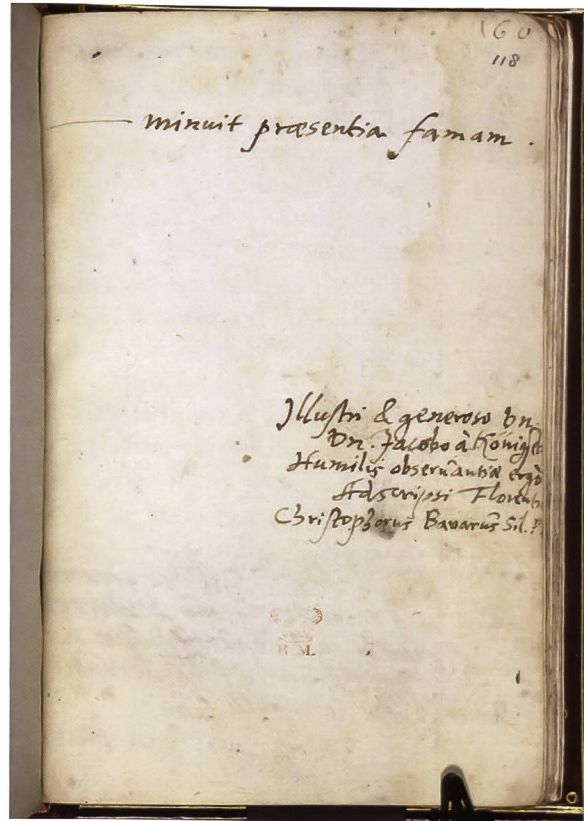 160
118
minuit præsentia famam .
Illustri & generoso Dn
Dn. Jacobo à Königß
Humilis observantiæ ergò
Adscripsi Florent
Christophorus Bavarus Sil.